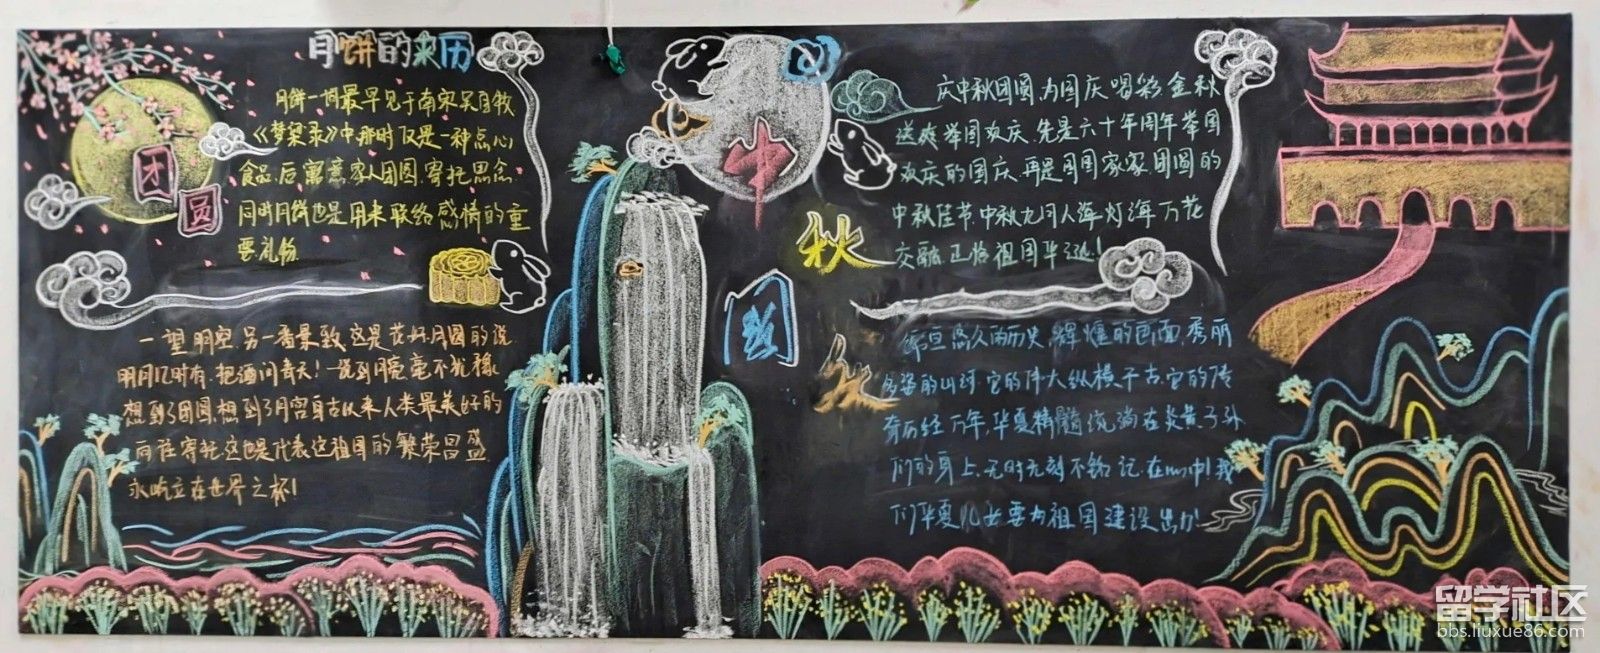 月饼的来历
月饼一词最早见于南宋吴自牧
《梦粱录》中那时仅是一种点心
食品.后寓意家人团圆.寄托思念.
同时月饼也是用来联络感情的重
要礼物.
团圆
一望明空另一番景致.这是花好月圆的说
明月几时有.把酒问青天!一说到月亮毫不犹豫
想到了团圆.想到了月宫自古以来人类最美好的
向往寄托.这也是代表这祖国的繁荣昌盛
永屹立在世界之林!
中
秋
国
庆中秋团圆.为国庆喝彩金秋
送爽举国欢庆.先是六十年周年举国
欢庆的国庆.再是周国家家团圆的
中秋佳节.中秋九月人海灯海万花
交融.正恰祖国华诞!
悠久的历史.辉煌的画面.秀丽
多姿的山河.它的伟大纵横千古.它的传
奇历经万年,华夏精髓流淌在炎黄子孙
们的身上.无时无刻不铭记.在心中!我
们华夏儿女要为祖国建设出力!
留学社区
bbs.liuxue86.com